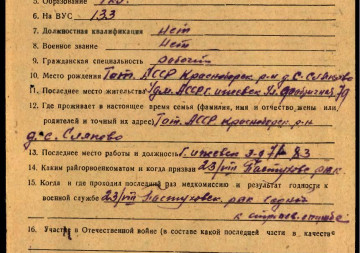 5. Образование
6. На ВУС 133
7. Должностная квалификация нет
8. Военное звание нет
9. Гражданская специальность рабочий
10. Место рождения Тат. АССР Красноборск. р-н д. С. Сляково
11. Последнее место жительства Удм. АССР г. Ижевск ул. Фабричная, 79
12. Где проживает в настоящее время семья (фамилия, имя и отчество жены или
родителей и точный их адрес) Тат. АССР Красноборск. р-н
д. С. Сляково
13. Последнее место работы и должность г. Ижевск з-д 74 83
14. Каким райгорвоенкоматом и когда призван 23/VIII Пастухов. рвк.
15. Когда и где проходил последний раз медкомиссию и результат годности к
военной службе 23/VIII Пастуховск. рвк годной
к строев. службе
16. Участие в Отечественной войне (в составе какой последней части, в качестве